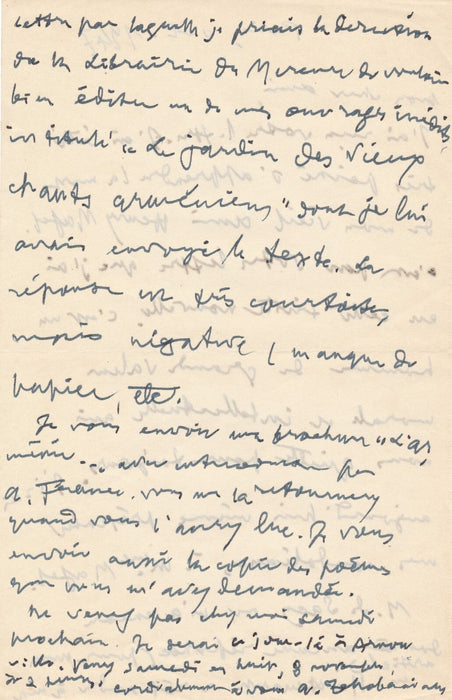 lettre par laquelle je priais la direction
de la Librairie du Mercure de vouloir
bien éditer un de mes ouvrages inédits
intitulé "Le jardin des vieux
chants arméniens" dont je lui
avais envoyé le texte. La
réponse est très courtoise,
mais négative (manque de
papier, etc.
Je vous envoie une brochure "L'Ar
ménie" avec introduction par
A. France. Vous me la retournerez
quand vous l'aurez lue. Je vous
envoie aussi la copie des poèmes
que vous m'avez demandée.
Ne venez pas chez moi samedi
prochain. Je serai ce jour-là à Arnou
ville. Venez samedi en huit, 8
à 2 heures. Cordialement à vous A. Tchobanian